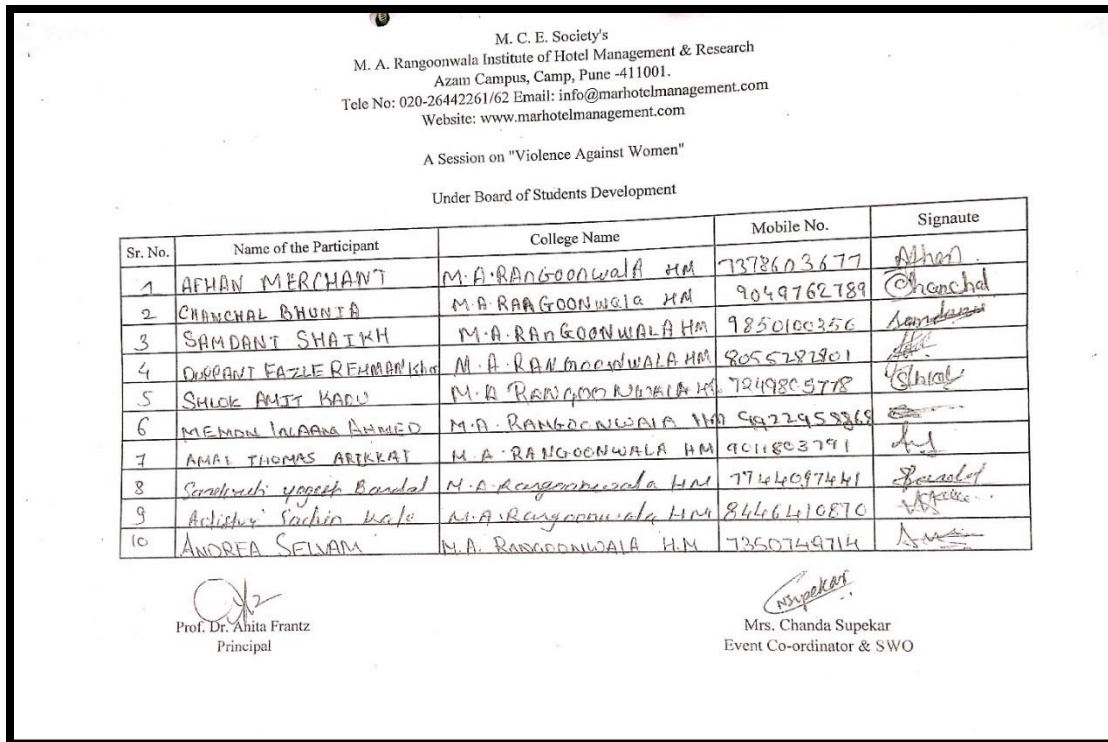 M. C. E. Society's
M. A. Rangoonwala Institute of Hotel Management & Research
Azam Campus, Camp, Pune -411001.
Tele No: 020-26442261/62 Email: info@marhotelmanagement.com
Website: www.marhotelmanagement.com
A Session on "Violence Against Women"
Under Board of Students Development
Sr. No. Name of the Participant College Name Mobile No. Signaute
1 AFHAN MERCHANT M.A.RAnGoonwalA HM 7378603677 Afhan
2 CHANCHAL BHUNIA M.A.RAAGOONWala HM 9049762789 Chanchal
3 SAMDANI SHAIKH M.A.RAnGOONWALA HM 9850100356
4 FAZLE REHMAN M.A.RANGOONWALA HM 8055282801
5 SHLOK AMIT KADU M.A RANGOONWALA 7249805778
6 MEMON AHMED M.A. RANGOONWALA HM 9922958868
7 AMAL THOMAS ARIKKAT M.A RANGOONWALA HM 9011803791
8 yogesh Bandal M.A.Rangoonwala HM 7744097441 Bandal
9 Sachin Kale M.A.Rangoonwala HM 8446410870
10 ANDREA SELVAM M.A. RANGOONWALA H.M 7350749714
NSupekar
Prof. Dr. Anita Frantz Mrs. Chanda Supekar
Principal Event Co-ordinator & SWO